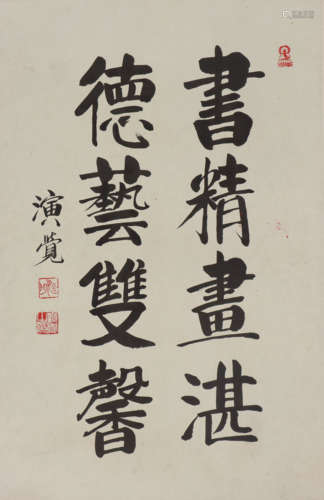 書精畫湛
德藝雙馨
演覺